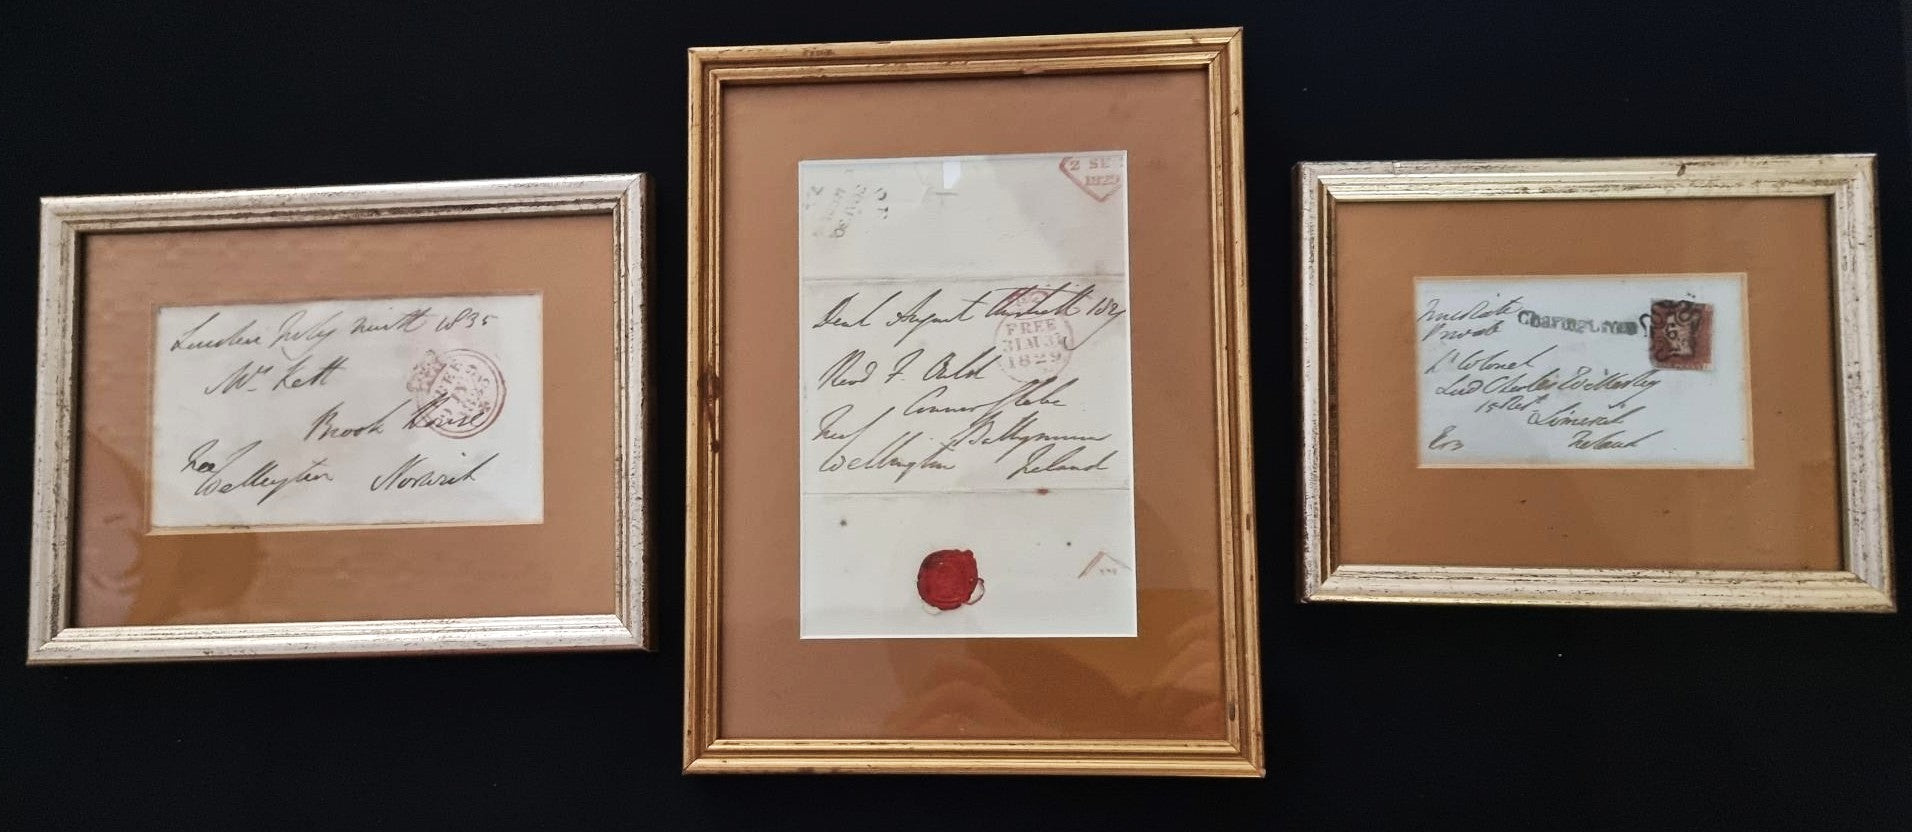 London July ninth 1835
Mrs Kett
Brook House
Free
Wellington Norwich
FREE
1835
2 SE
1829
Deal August thirtieth 1829
FREE
31 AU 31
1829
Revd F.
Connor Glebe
Free Ballymena
Wellington Ireland
Immediate
Private
Charing Cross
Lt Colonel
Lord Charles Wellesley
15 Regt
Limerick
Ireland